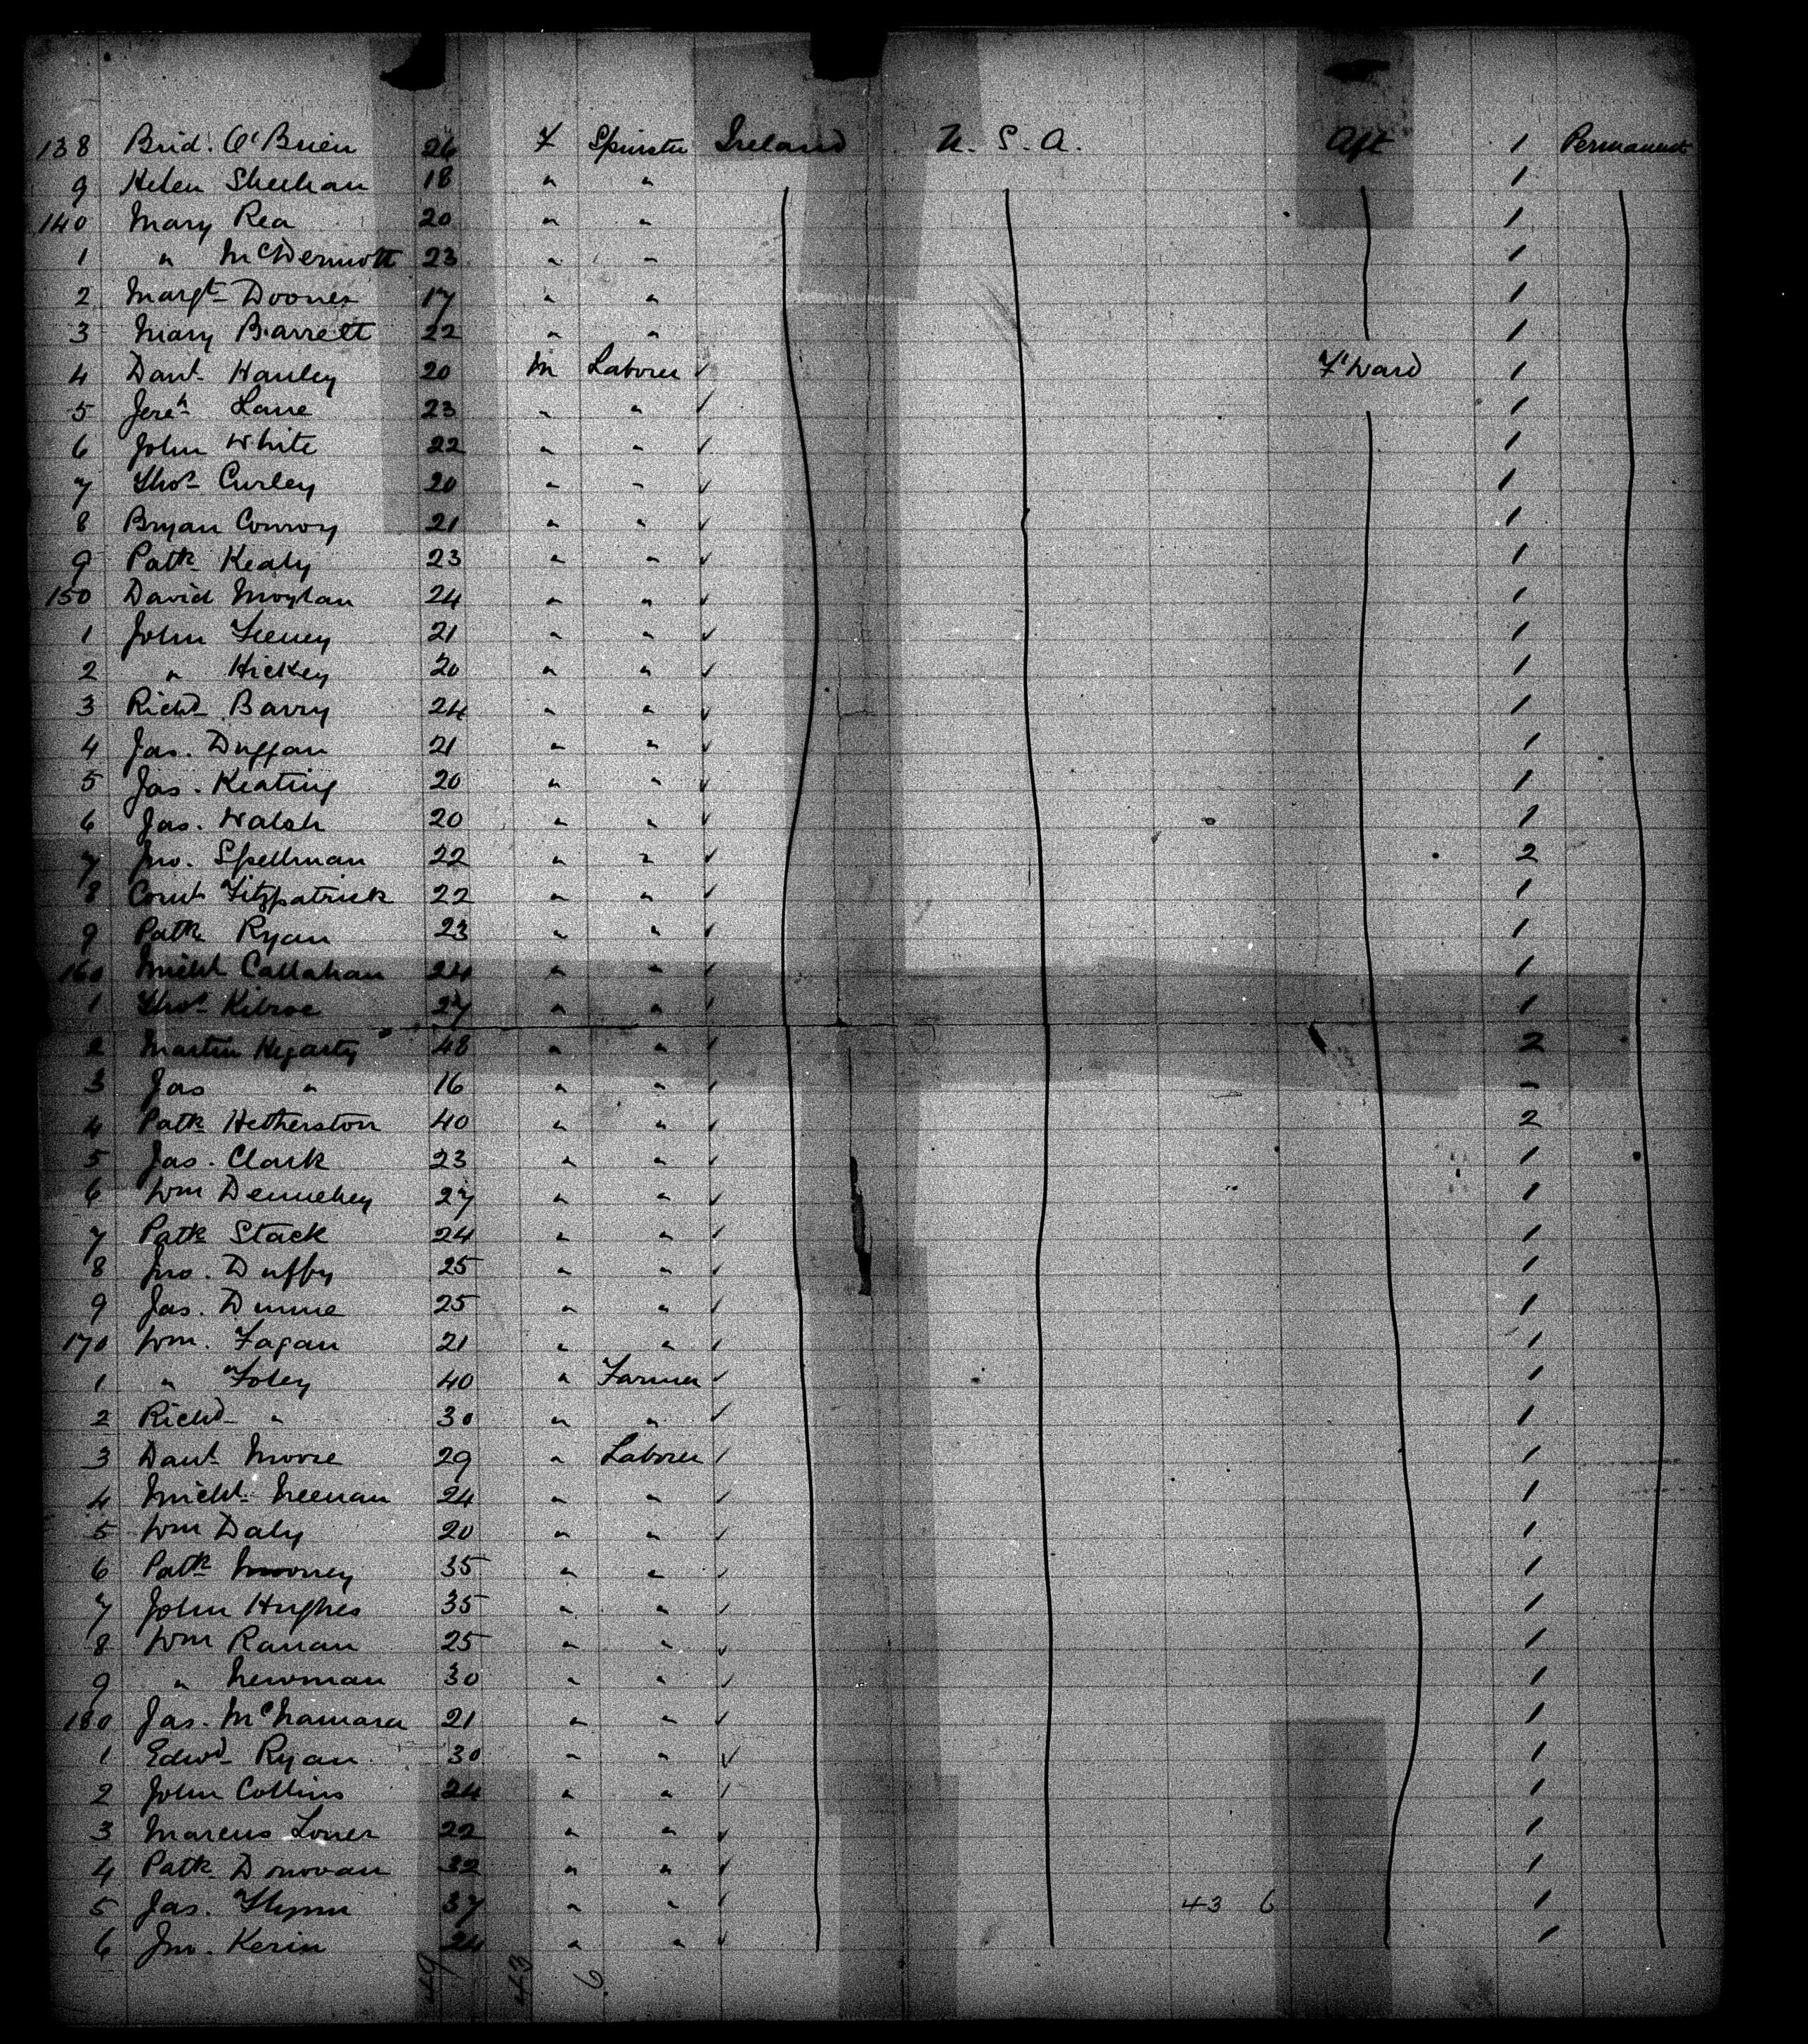 138 Brid. O'Brien 26 F Spinster Ireland U. S. A. Aft 1 Permanent
9 Helen Sheehan 18 " " 1
140 Mary Rea 20 " " 1
1 " McDermott 23 " " 1
2 Margt Doones 17 " " 1
3 Mary Barrett 22 " " 1
4 Danl. Hanley 20 M Laborer ✓ F'ward 1
5 Jereh Lane 23 " " ✓ 1
6 John White 22 " " ✓ 1
7 Thos Curley 20 " " ✓ 1
8 Bryan Conroy 21 " " ✓ 1
9 Patk Kealy 23 " " ✓ 1
150 David Moylan 24 " " ✓ 1
1 John Feeney 21 " " ✓ 1
2 " Hickey 20 " " ✓ 1
3 Richd Barry 24 " " ✓ 1
4 Jas. Duggan 21 " " ✓ 1
5 Jas. Keating 20 " " ✓ 1
6 Jas. Walsh 20 " " ✓ 1
7 Jno. Spellman 22 " " ✓ 2
8 Cornl Fitzpatrick 22 " " ✓ 1
9 Patk Ryan 23 " " ✓ 1
160 Michl Callahan 24 " " ✓ 1
1 Thos Kilroe 27 " " ✓ 1
2 Martin Hegarty 48 " " ✓ 2
3 Jas " 16 " " ✓ -
4 Patk Hetherston 40 " " ✓ 2
5 Jas. Clark 23 " " ✓ 1
6 Wm Dennehey 27 " " ✓ 1
7 Patk Stack 24 " " ✓ 1
8 Jno. Duffy 25 " " ✓ 1
9 Jas. Dunne 25 " " ✓ 1
170 Wm. Fagan 21 " " ✓ 1
1 " Foley 40 " Farmer ✓ 1
2 Richd " 30 " " ✓ 1
3 Danl Moore 29 " Laborer ✓ 1
4 Michl. Neenan 24 " " ✓ 1
5 Wm Daly 20 " " ✓ 1
6 Patk Mooney 35 " " ✓ 1
7 John Hughes 35 " " ✓ 1
8 Wm Ranan 25 " " ✓ 1
9 " Newman 30 " " ✓ 1
180 Jas. McNamara 21 " " ✓ 1
1 Edwd Ryan 30 " " ✓ 1
2 John Collins 24 " " ✓ 1
3 Marcus Loner 22 " " ✓ 1
4 Patk Donovan 32 " " ✓ 1
5 Jas. Flynn 37 " " ✓ 43 6 1
6 Jno. Kerin 24 " " ✓ 1
49 43 6